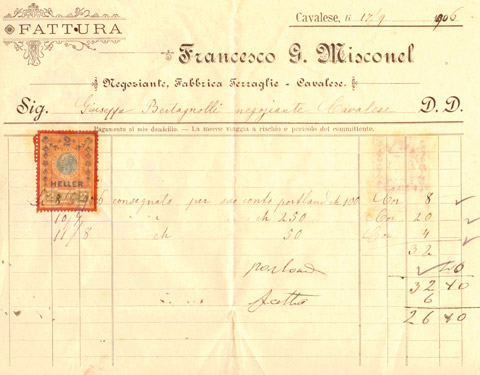 FATTURA
Cavalese, li 17/9 1906
Francesco G. Misconel
Negoziante, Fabbrica Ferraglie - Cavalese.
Sig. Giuseppe Bertagnolli negoziante Cavalese D. D.
Pagamento al mio domicilio. — La merce viaggia a rischio e pericolo del committente.
2
HELLER
8 consegnato per suo conto portland ch 100 Cor 8
10/8 " " ch 250 Cor 20
11/8 ch 50 Cor 4
32
40
32 40
6
26 40